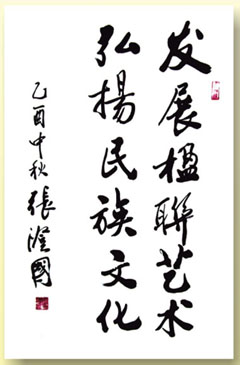 发展楹聯艺术
弘揚民族文化
乙酉中秋張國